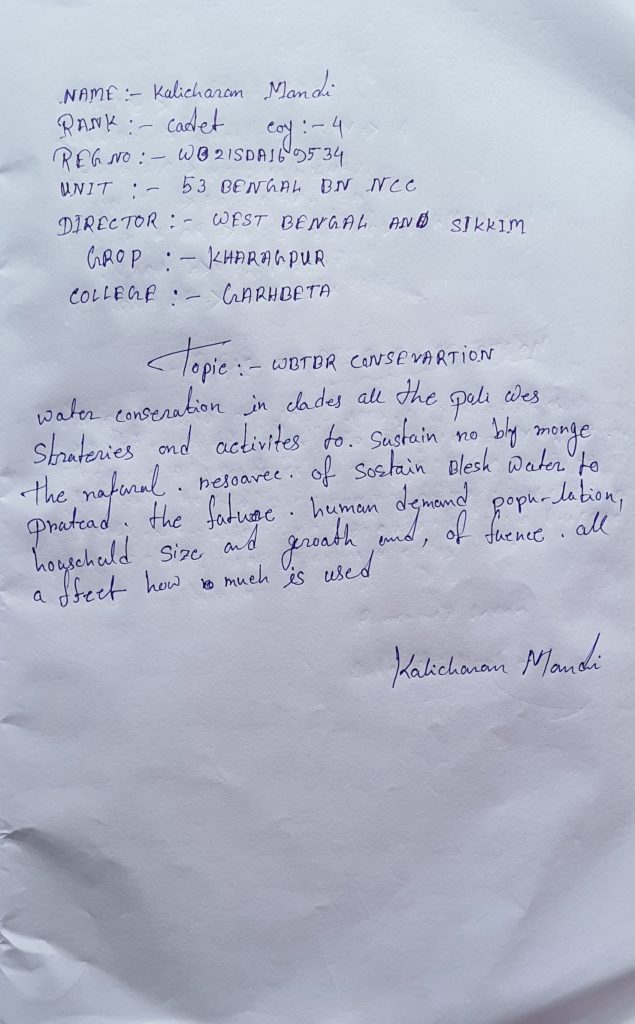 NAME :- Kalicharan Mandi
RANK :- cadet coy :- 4
REG NO :- WB21SDA169534
UNIT :- 53 BENGAL BN NCC
DIRECTOR :- WEST BENGAL AND SIKKIM
GROP :- KHARAGPUR
COLLEGE :- GARHBETA
Topic :- WBTBR CONSEVARTION
water conseration in clades all the pali cies
Strateries and activites to. Sustain no bly monge
the natural . resoarce. of Sostain blesh water to
Pratead . the fature . human demand popu-lation,
houschuld size and groath and, of fuence . all
a ffect how much is used
Kalicharan Mandi